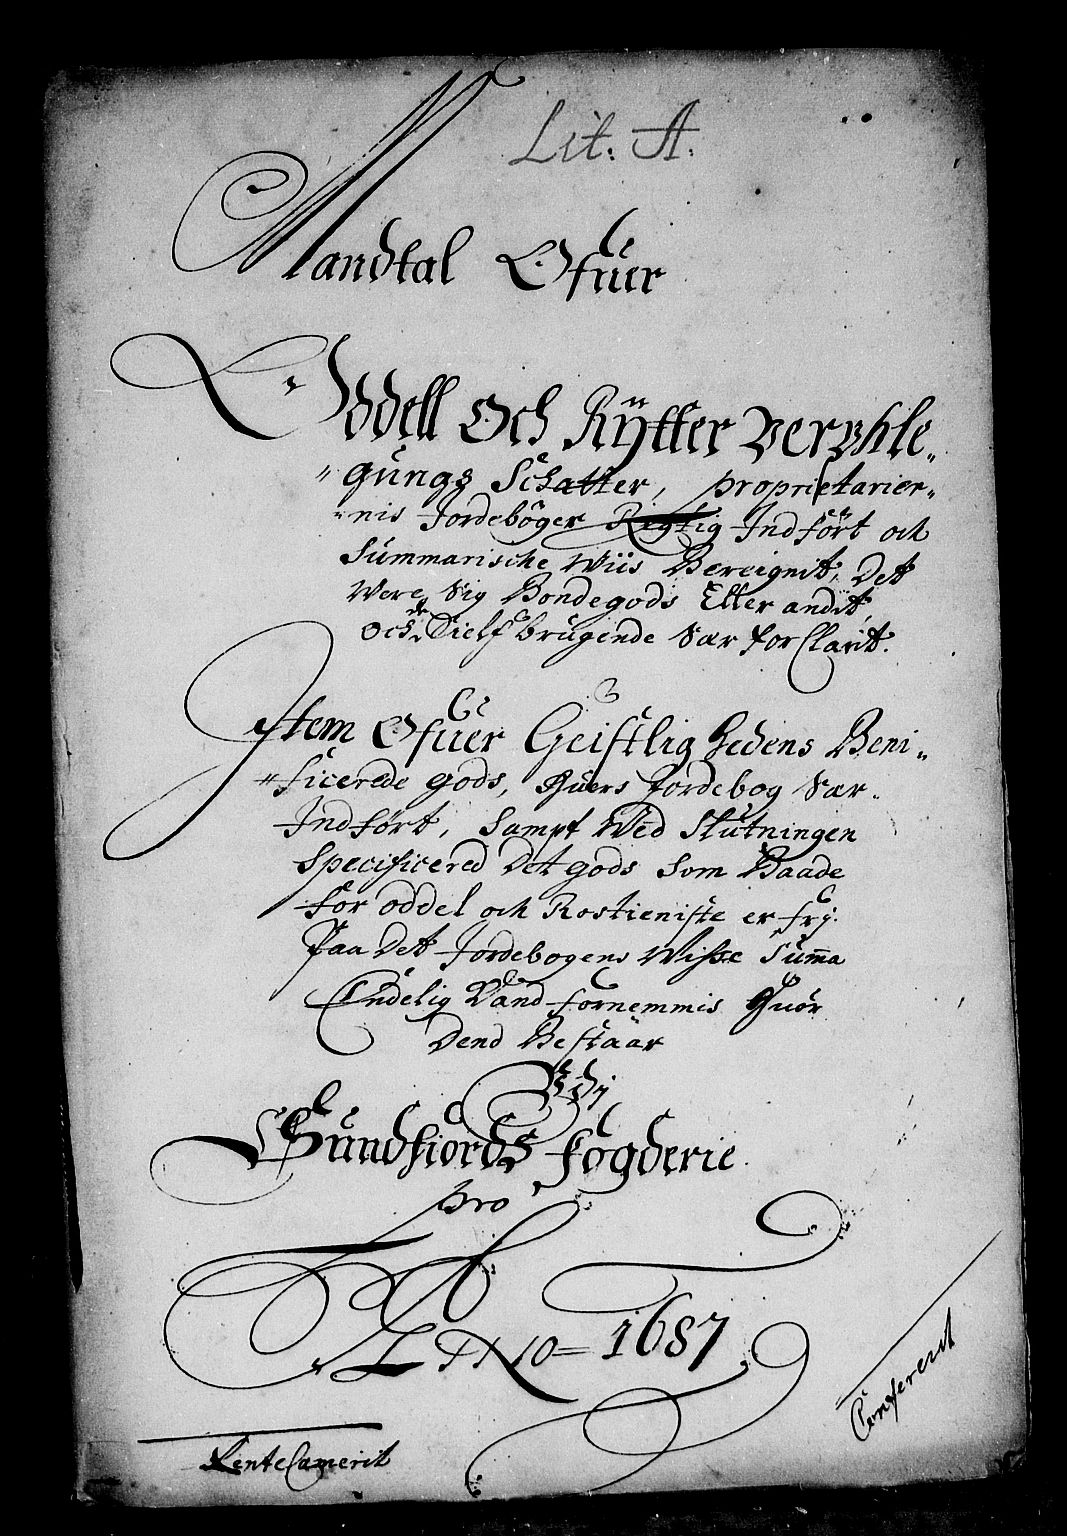 Lit: A.
Mandtal Ofuer
Oddell Och Rÿtter
gungs Schatter, proprietarier„
„nis Jordebøger Rigtig Indført och
Summarische Wiis Bereignit, Det
Were Sig Bondegods Eller andit,
och Sielfbrugende Sær forClarit.
Item Ofuer Geistlighedens Beni„
„ficerede gods, Huers Jordebog Sær„
Indført, Sampt Wed Slutningen
Specificered Det gods Som Baade
for oddel och Rostieniste er frÿ.
Paa Det Jordebogens Wisse Summa
Endelig Kand fornemmis Huor
Dend Bestaar
Udj
Sundfiords Fogderie
pro
ANNO= 1687
Confererit
RenteCamerit